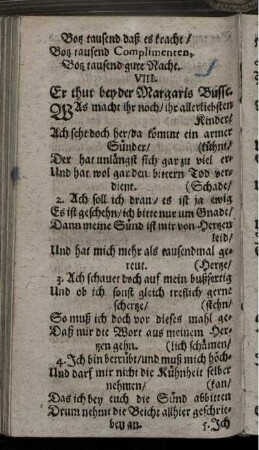 Botz tausend daß es kracht/
Botz tausend Complimenten,
Botz tausend gute Nacht.
VIII.
Er thut bey der Margaris Busse.
WAs macht ihr noch/ ihr allerliebsten
Kinder/
Ach seht doch her/ da kömmt ein armer
Sünder/ (kühnt/
Der hat unlängst sich gar zu viel er-
Und hat wol gar den bittern Tod ver-
dient. (Schade/
2. Ach soll ich dran/ es ist ja ewig
Es ist geschehn/ ich bitte nur um Gnade/
Dann meine Sünd ist mir von Hertzen
leid/
Und hat mich mehr als tausendmal ge-
reut. (Hertze/
3. Ach schauet doch auf mein bußfertig
Und ob ich sonst gleich treflich gerne
schertze/ (stehn/
So muß ich doch vor dieses mahl ge-
Daß mir die Wort aus meinem Her-
tzen gehn. (lich schämen/
4. Ich bin betrübt/ und muß mich höch-
Und darf mir nicht die Kühnheit selber
nehmen/ (kan/
Das ich bey euch die Sünd abbitten
Drum nehmt die Beicht allhier geschrie-
ben an. 5. Ich